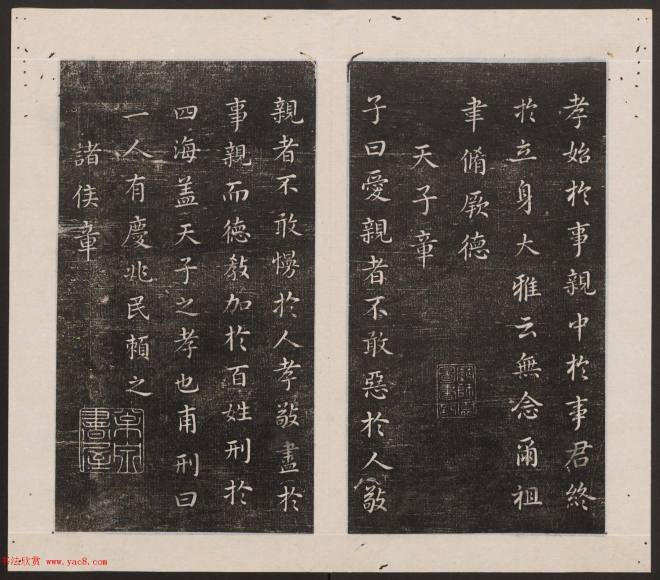 孝始於事親中於事君終
於立身大雅云無念爾祖
聿脩厥德
天子章
子曰愛親者不敢惡於人敬
親者不敢慢於人孝敬盡於
事親而德教加於百姓刑於
四海蓋天子之孝也甫刑曰
一人有慶兆民賴之
諸侯章
书法欣赏 www.yac8.com